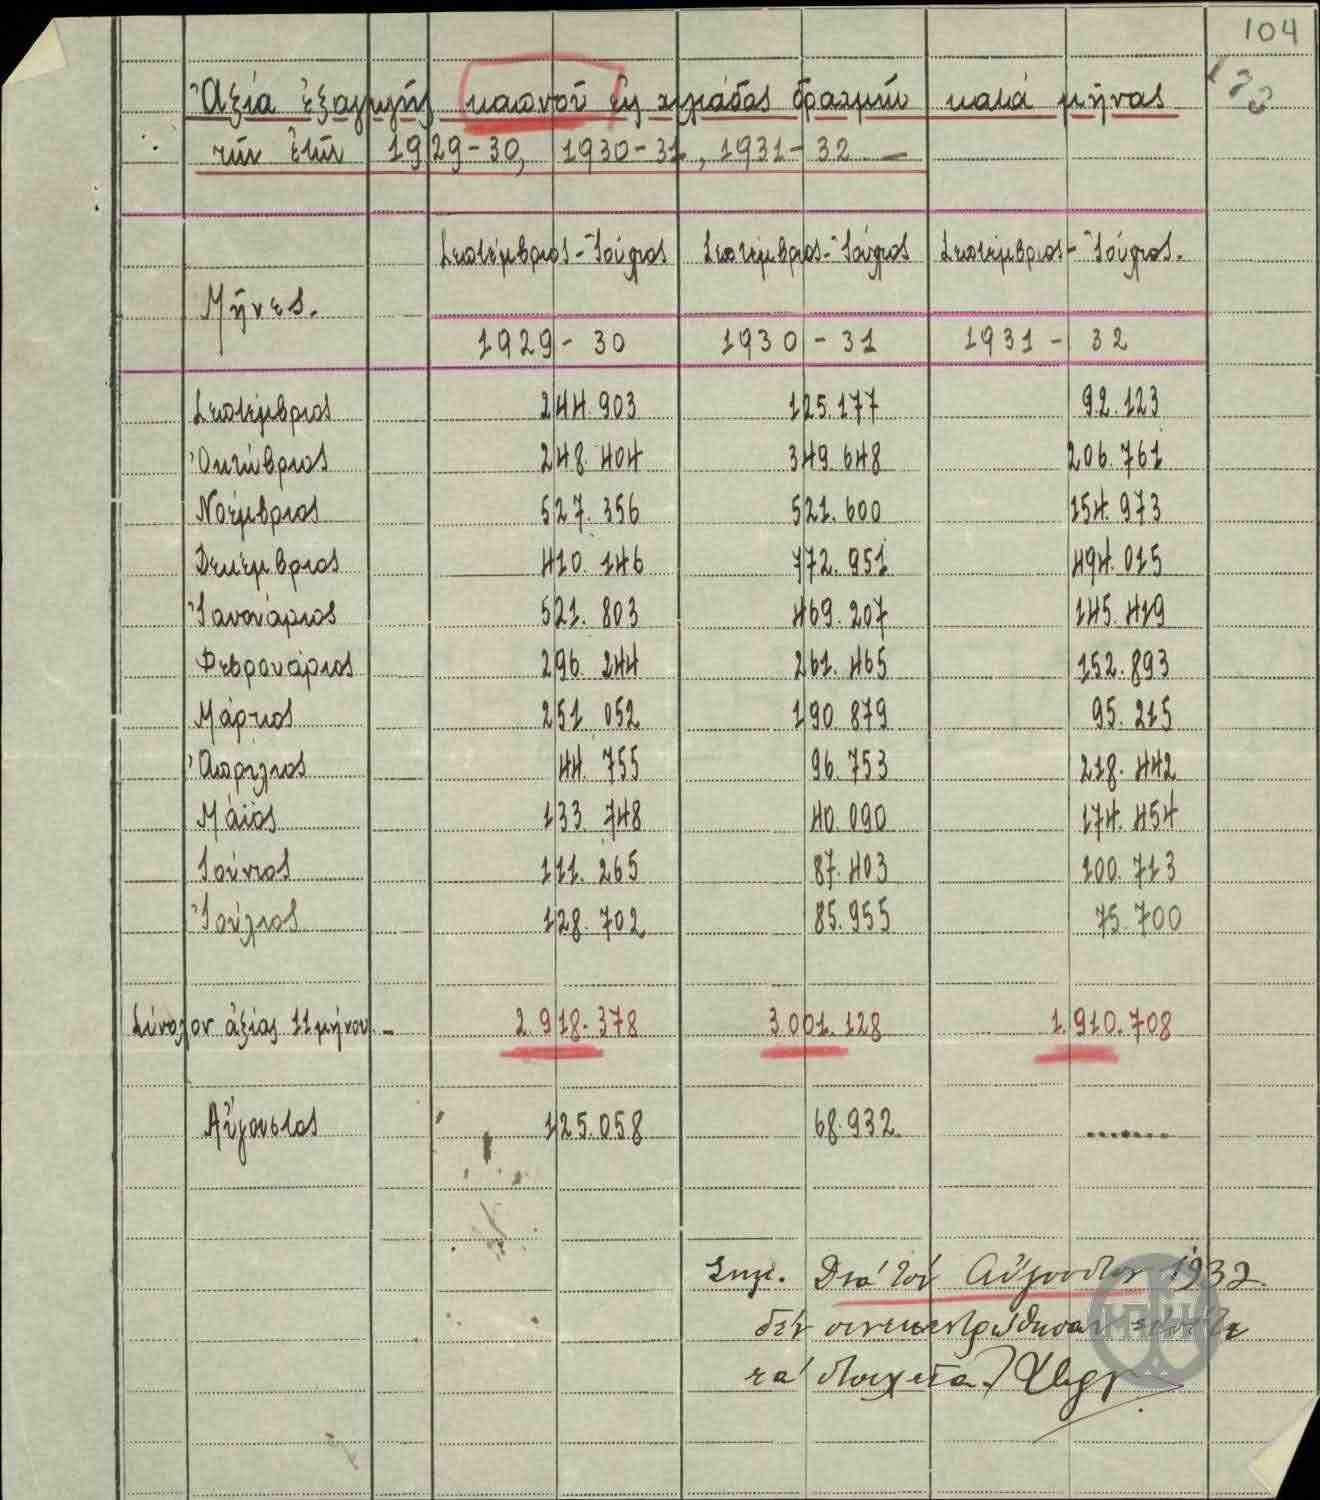 104
Ἀξία ἐξαγωγῆς καπνοῦ εἰς χιλιάδας δραχμῶν κατὰ μῆνας
τῶν ἐτῶν 1929-30, 1930-31, 1931-32
Σεπτέμβριος-Ἰούλιος Σεπτέμβριος-Ἰούλιος Σεπτέμβριος-Ἰούλιος.
Μῆνες.
1929-30 1930-31 1931-32
Σεπτέμβριος 244.903 125.177 92.123
Ὀκτώβριος 248.404 349.648 206.761
Νοέμβριος 527.356 521.600 154.973
Δεκέμβριος 410.146 772.951 494.015
Ἰανουάριος 521.803 469.207 145.419
Φεβρουάριος 296.244 261.465 152.893
Μάρτιος 251.052 190.879 95.215
Ἀπρίλιος 44.755 96.753 218.442
Μάϊος 133.748 40.090 174.454
Ἰούνιος 111.265 87.403 100.713
Ἰούλιος 128.702 85.955 75.700
Σύνολον ἀξίας 11μήνου - 2.918.378 3.001.128 1.910.708
Αὔγουστος 125.058 68.932 .......
Σημ. Διὰ τὸν Αὔγουστον 1932
δὲν συνεκεντρώθησαν εἰσέτι
τὰ στοιχεῖα.